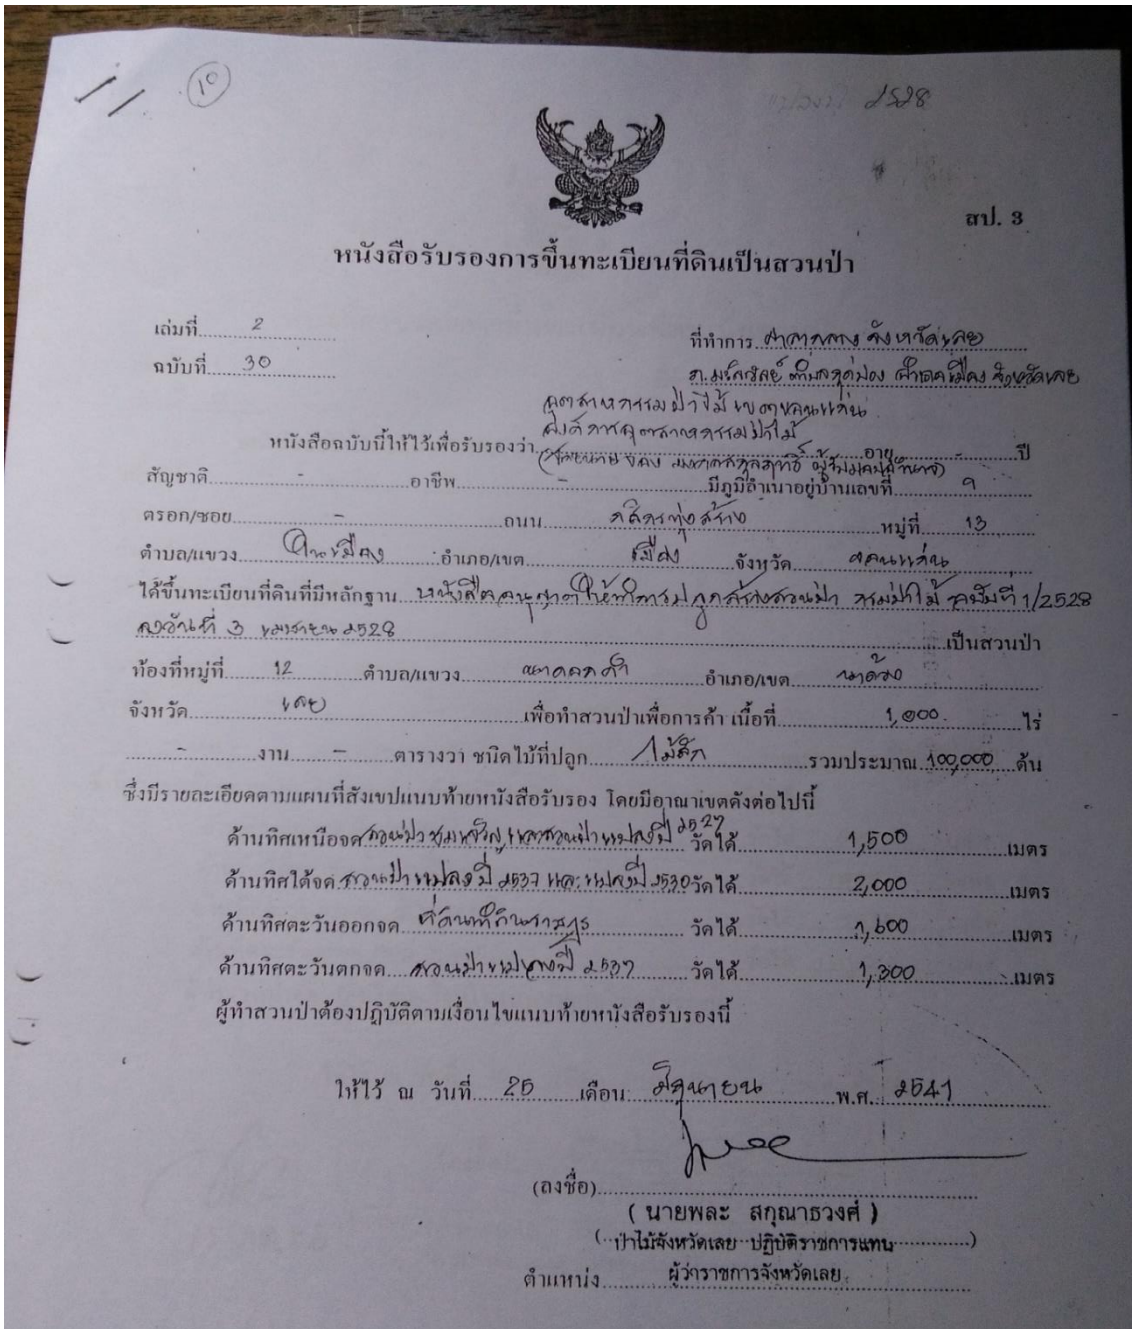 10
2528
สป. 3
หนังสือรับรองการขึ้นทะเบียนที่ดินเป็นสวนป่า
เล่มที่ 2
ที่ทำการ ศาลากลาง จังหวัดเลย
ฉบับที่ 30
ถ.มลิวรรณ ตำบลกุดป่อง อำเภอเมือง จังหวัดเลย
อุตสาหกรรมป่าไม้เขตขอนแก่น
องค์การอุตสาหกรรมป่าไม้
หนังสือฉบับนี้ให้ไว้เพื่อรับรองว่า อายุ - ปี
ผู้รับมอบอำนาจ)
สัญชาติ - อาชีพ - มีภูมิลำเนาอยู่บ้านเลขที่ 9
ตรอก/ซอย - ถนน หมู่ที่ 13
ตำบล/แขวง ในเมือง อำเภอ/เขต เมือง จังหวัด ขอนแก่น
ได้ขึ้นทะเบียนที่ดินที่มีหลักฐาน หนังสืออนุญาตให้ทำการปลูกสร้างสวนป่า กรมป่าไม้ ฉบับที่ 1/2528
ลงวันที่ 3 เมษายน 2528 เป็นสวนป่า
ท้องที่หมู่ที่ 12 ตำบล/แขวง นาดอกคำ อำเภอ/เขต นาด้วง
จังหวัด เลย เพื่อทำสวนป่าเพื่อการค้า เนื้อที่ 1,000 ไร่
- งาน - ตารางวา ชนิดไม้ที่ปลูก ไม้สัก รวมประมาณ 100,000 ต้น
ซึ่งมีรายละเอียดตามแผนที่สังเขปแนบท้ายหนังสือรับรอง โดยมีอาณาเขตดังต่อไปนี้
ด้านทิศเหนือจด สวนป่า และสวนป่าแปลงปี 2527 วัดได้ 1,500 เมตร
ด้านทิศใต้จด สวนป่าแปลงปี 2537 และแปลงปี 2530 วัดได้ 2,000 เมตร
ด้านทิศตะวันออกจด ที่ดินทำกินราษฎร วัดได้ 1,600 เมตร
ด้านทิศตะวันตกจด สวนป่าแปลงปี 2537 วัดได้ 1,300 เมตร
ผู้ทำสวนป่าต้องปฏิบัติตามเงื่อนไขแนบท้ายหนังสือรับรองนี้
ให้ไว้ ณ วันที่ 25 เดือน มิถุนายน พ.ศ. 2541
(ลงชื่อ)
( นายพละ สกุณาธวงศ์ )
( ป่าไม้จังหวัดเลย ปฏิบัติราชการแทน )
ตำแหน่ง ผู้ว่าราชการจังหวัดเลย